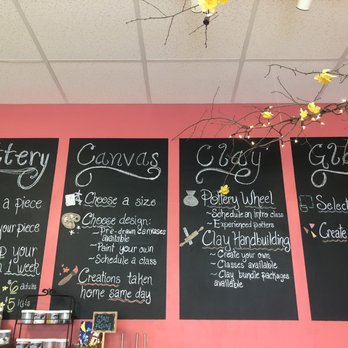 ttery
a piece
your piece
up your
n 1 week
$6 adults
$5 kids
Canvas
Choose a size
Choose design:
~ Pre-drawn canvases
available
~ Paint your own
~ Schedule a class
Creations taken
home same day
Clay
Pottery Wheel
~ Schedule an intro class
~ Experienced potters
Clay Handbuilding
~ Create your own
~ Classes available
~ Clay bundle packages
available
Gl
Select
Create